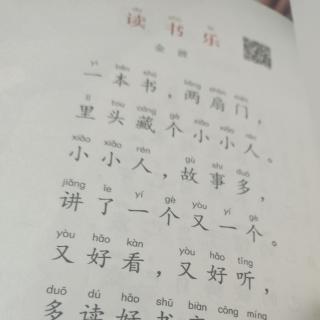 读书乐
yì běn shū liǎng shàn mén
一本书,两扇门,
lǐ tou cáng gè xiǎo xiǎo rén
里头藏个小小人。
xiǎo xiǎo rén gù shi duō
小小人,故事多,
jiǎng le yí gè yòu yí gè
讲了一个又一个。
yòu hǎo kàn yòu hǎo tīng
又好看,又好听,
duō dú hǎo shū biàn cōng míng
多读好书变